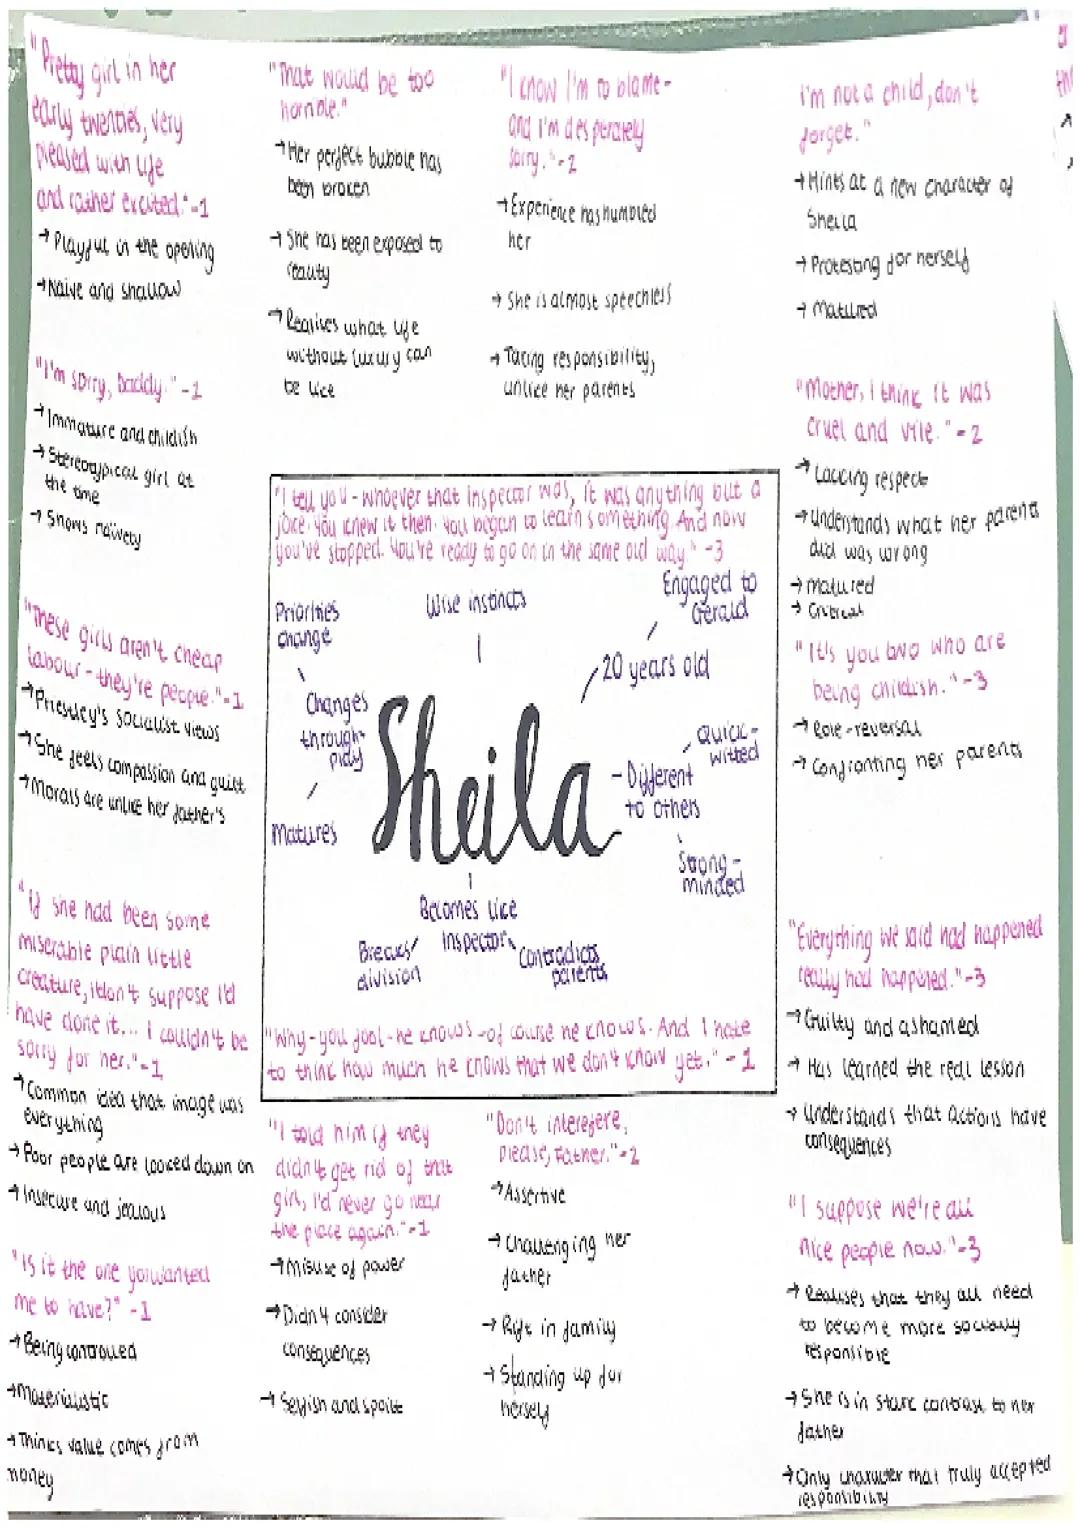 "Pretty girl in her
early twenties, very
pleased with life
and rather excited."-1
→ Playful in the opening
→ Naive and shallow
"I'm sorry, Daddy." -1
→ Immature and childish
→ Stereotypical girl at
the time
→ Shows naivety
"These girls aren't cheap
labour - they're people."-1
→ Priestley's socialist views
→ She feels compassion and guilt
→ Morals are unlike her father's
"If she had been some
miserable plain little
creature, I don't suppose I'd
have done it... I couldn't be
sorry for her."-1
→ Common idea that image was
everything
→ Poor people are looked down on
→ Insecure and jealous
"Is it the one you wanted
me to have?" -1
→ Being controlled
→ Materialistic
→ Thinks value comes from
money
"That would be too
horrible."
→ Her perfect bubble has
been broken
→ She has been exposed to
reality
→ Realises what life
without luxury can
be like
"I know I'm to blame -
and I'm desperately
sorry."-2
→ Experience has humbled
her
→ She is almost speechless
→ Taking responsibility,
unlike her parents
I'm not a child, don't
forget."
→ Hints at a new character of
Sheila
→ Protesting for herself
→ Matured
"Mother, I think it was
cruel and vile." -2
→ Lacking respect
→ Understands what her parents
did was wrong
→ Matured
→ Critical
"It's you two who are
being childish." -3
→ Role-reversal
→ Confronting her parents
"Everything we said had happened
really had happened."-3
→ Guilty and ashamed
→ Has learned the real lesson
→ Understands that actions have
consequences
"I suppose we're all
nice people now."-3
→ Realises that they all need
to become more socially
responsible
→ She is in stark contrast to her
father
→ Only character that truly accepted
responsibility
"I tell you - whoever that Inspector was, it was anything but a
joke. You knew it then. You began to learn something. And now
you've stopped. You're ready to go on in the same old way." -3
Priorities
change
Wise instincts
Engaged to
Gerald
20 years old
Changes
through
play
Matures
Sheila
Quick-
witted
- Different
to others
Strong-
minded
Becomes like
Inspector
Breaks
division
Contradicts
parents
"Why - you fool - he knows - of course he knows. And I hate
to think how much he knows that we don't know yet." -1
"I told him if they
didn't get rid of that
girl, I'd never go near
the place again."-1
→ Misuse of power
→ Didn't consider
consequences
→ Selfish and spoilt
"Don't interefere,
please, Father."-2
→ Assertive
→ Challenging her
father
→ Rift in family
→ Standing up for
herself